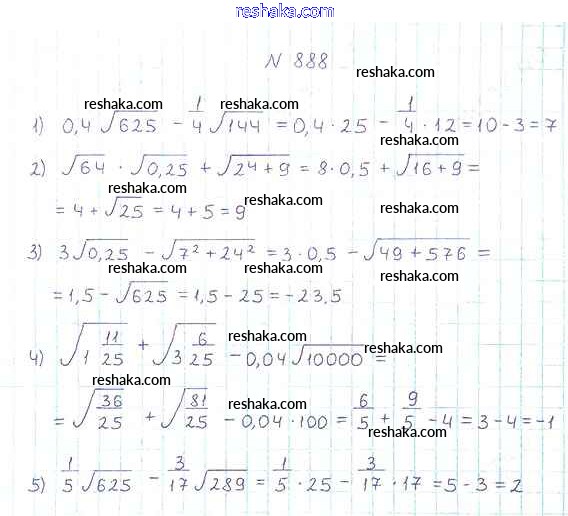 reshaka.com
N 888
reshaka.com
reshaka.com reshaka.com
1) 0,4 √625 - 1/4 √144 = 0,4 · 25 - 1/4 · 12 = 10 - 3 = 7
reshaka.com
2) √64 · √0,25 + √24 + 9 = 8 · 0,5 + √16 + 9 =
reshaka.com reshaka.com reshaka.com
= 4 + √25 = 4 + 5 = 9
reshaka.com
3) 3√0,25 - √7² + 24² = 3 · 0,5 - √49 + 576 =
reshaka.com reshaka.com reshaka.com
= 1,5 - √625 = 1,5 - 25 = -23,5
reshaka.com reshaka.com
4) √1 11/25 + √3 6/25 - 0,04√10000 =
reshaka.com
= √36/25 + √81/25 - 0,04 · 100 = 6/5 + 9/5 - 4 = 3 - 4 = -1
reshaka.com reshaka.com
reshaka.com reshaka.com
5) 1/5 √625 - 3/17 √289 = 1/5 · 25 - 3/17 · 17 = 5 - 3 = 2